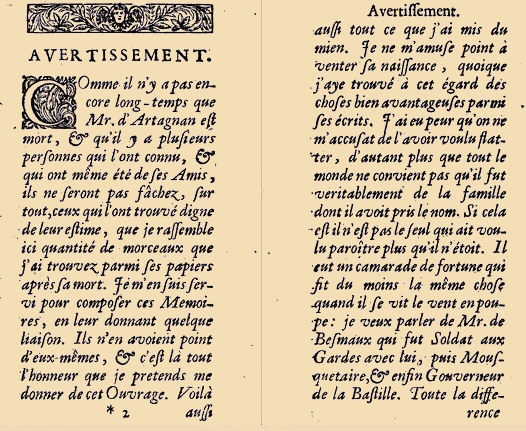 AVERTISSEMENT.
Comme il n'y a pas en-
core long-temps que
Mr. d'Artagnan eſt
mort, & qu'il y a pluſieurs
perſonnes qui l'ont connu, &
qui ont même été de ſes Amis,
ils ne ſeront pas fâchez, ſur
tout, ceux qui l'ont trouvé digne
de leur eſtime, que je raſſemble
ici quantité de morceaux que
j'ai trouvez parmi ſes papiers
après ſa mort. Je m'en ſuis ſer-
vi pour compoſer ces Memoi-
res, en leur donnant quelque
liaiſon. Ils n'en avoient point
d'eux-mêmes, & c'eſt là tout
l'honneur que je pretends me
donner de cet Ouvrage. Voilà
* 2 auſſi
Avertiſſement.
auſſi tout ce que j'ai mis du
mien. Je ne m'amuſe point à
venter ſa naiſſance, quoique
j'aye trouvé à cet égard des
choſes bien avantageuſes parmi
ſes écrits. J'ai eu peur qu'on ne
m'accuſat de l'avoir voulu flat-
ter, d'autant plus que tout le
monde ne convient pas qu'il fut
veritablement de la famille
dont il avoit pris le nom. Si cela
eſt il n'eſt pas le ſeul qui ait vou-
lu paroître plus qu'il n'étoit. Il
eut un camarade de fortune qui
fit du moins la même choſe
quand il ſe vit le vent en pou-
pe: je veux parler de Mr. de
Beſmaux qui fut Soldat aux
Gardes avec lui, puis Mouſ-
quetaire, & enfin Gouverneur
de la Baſtille. Toute la diffe-
rence